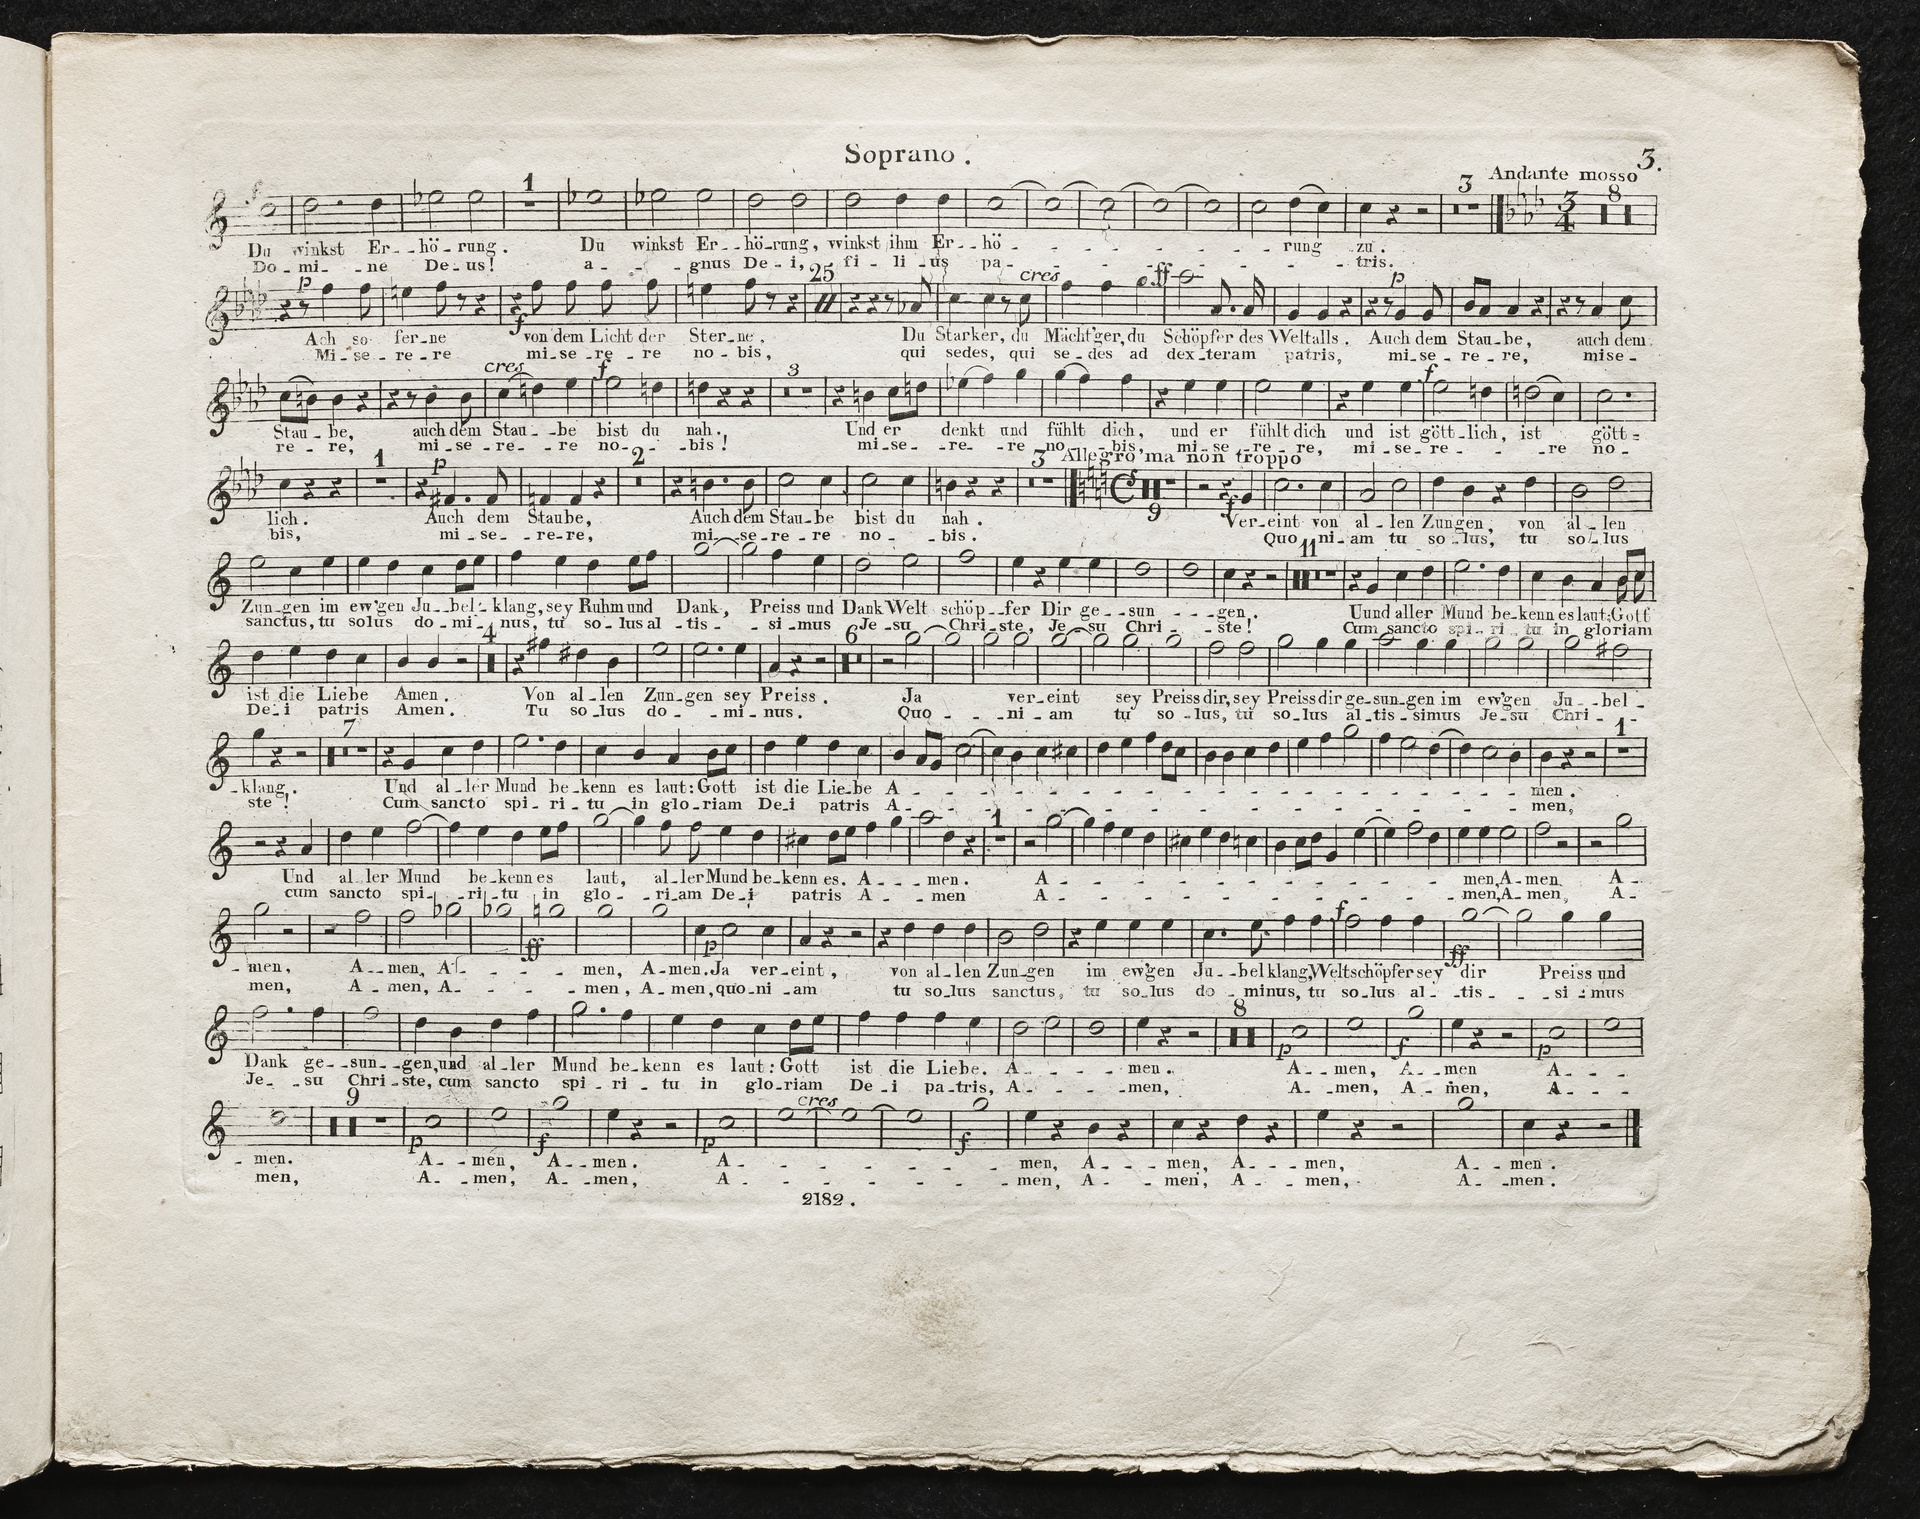 Soprano.
3.
1
3
Andante mosso
8
Du winkst Er--hö-rung. Du winkst Er--hö-rung, winkst ihm Er--hö - - - - - - rung zu.
Do-mi--ne De-us! a---gnus De-i, fi-li-us pa - - - - - - - tris.
p
f
25
cres
ff
p
Ach so fer-ne von dem Licht der Ster-ne. Du Starker, du Mächt'ger, du Schöpfer des Weltalls. Auch dem Stau-be, auch dem
Mi-se-re-re mi-se-re-re no-bis, qui sedes, qui se-des ad dex-teram patris, mi-se-re-re, mise-
cres
f
3
f
Stau-be, auch dem Stau--be bist du nah. Und er denkt und fühlt dich, und er fühlt dich und ist gött-lich, ist gött=
re-re, mi-se-re--re no--bis! mi-se-re--re no--bis, mi-se-re-re, mi-se-re---re no-
1
p
2
3
Allegro ma non troppo
9
f
lich. Auch dem Staube, Auch dem Stau-be bist du nah. Ver-eint von al-len Zungen, von al-len
bis, mi-se-re-re, mi-se-re-re no--bis. Quo-ni-am tu so-lus, tu so-lus
11
Zun-gen im ew'gen Ju-bel-klang, sey Ruhm und Dank, Preiss und Dank Welt schöp--fer Dir ge--sun---gen. Uund aller Mund be-kenn es laut: Gott
sanctus, tu solus do-mi-nus, tu so-lus al-tis--si-mus Je-su Chri-ste, Je-su Chri--ste! Cum sancto spi-ri-tu in gloriam
4
6
ist die Liebe Amen. Von al-len Zun-gen sey Preiss. Ja ver-eint sey Preiss dir, sey Preiss dir ge-sun-gen im ew'gen Ju--bel-
De-i patris Amen. Tu so-lus do--mi-nus. Quo--ni-am tu so-lus, tu so-lus al-tis-simus Je-su Chri--
7
1
-klang. Und al-ler Mund be-kenn es laut: Gott ist die Lie-be A - - - - - - - - men.
ste! Cum sancto spi-ri-tu in glo-riam De-i patris A - - - - - - - - men,
1
Und al-ler Mund be-kenn es laut, al-ler Mund be-kenn es. A---men. A - - - - - - - men, A-men. A--
cum sancto spi-ri-tu in glo-ri-am De-i patris A--men A - - - - - - - men, A-men, A--
ff
p
f
ff
-men, A--men, A - - - men, A-men. Ja ver-eint, von al-len Zun-gen im ew'gen Ju--bel klang, Weltschöpfer sey dir Preiss und
men, A-men, A - - - men, A-men, quo-ni-am tu so-lus sanctus, tu so-lus do-minus, tu so-lus al-tis---si-mus
8
p
f
p
Dank ge--sun--gen, und al-ler Mund be-kenn es laut: Gott ist die Liebe. A - - - men. A--men, A--men A---
Je--su Chri-ste, cum sancto spi-ri-tu in glo-riam De-i pa-tris, A - - - men, A--men, A-men, A---
9
p
f
p
cres
f
-men. A--men, A--men. A - - - - - - men, A---men, A---men, A--men.
men, A--men, A--men, A - - - - - - men, A--men, A--men, A--men.
2182.